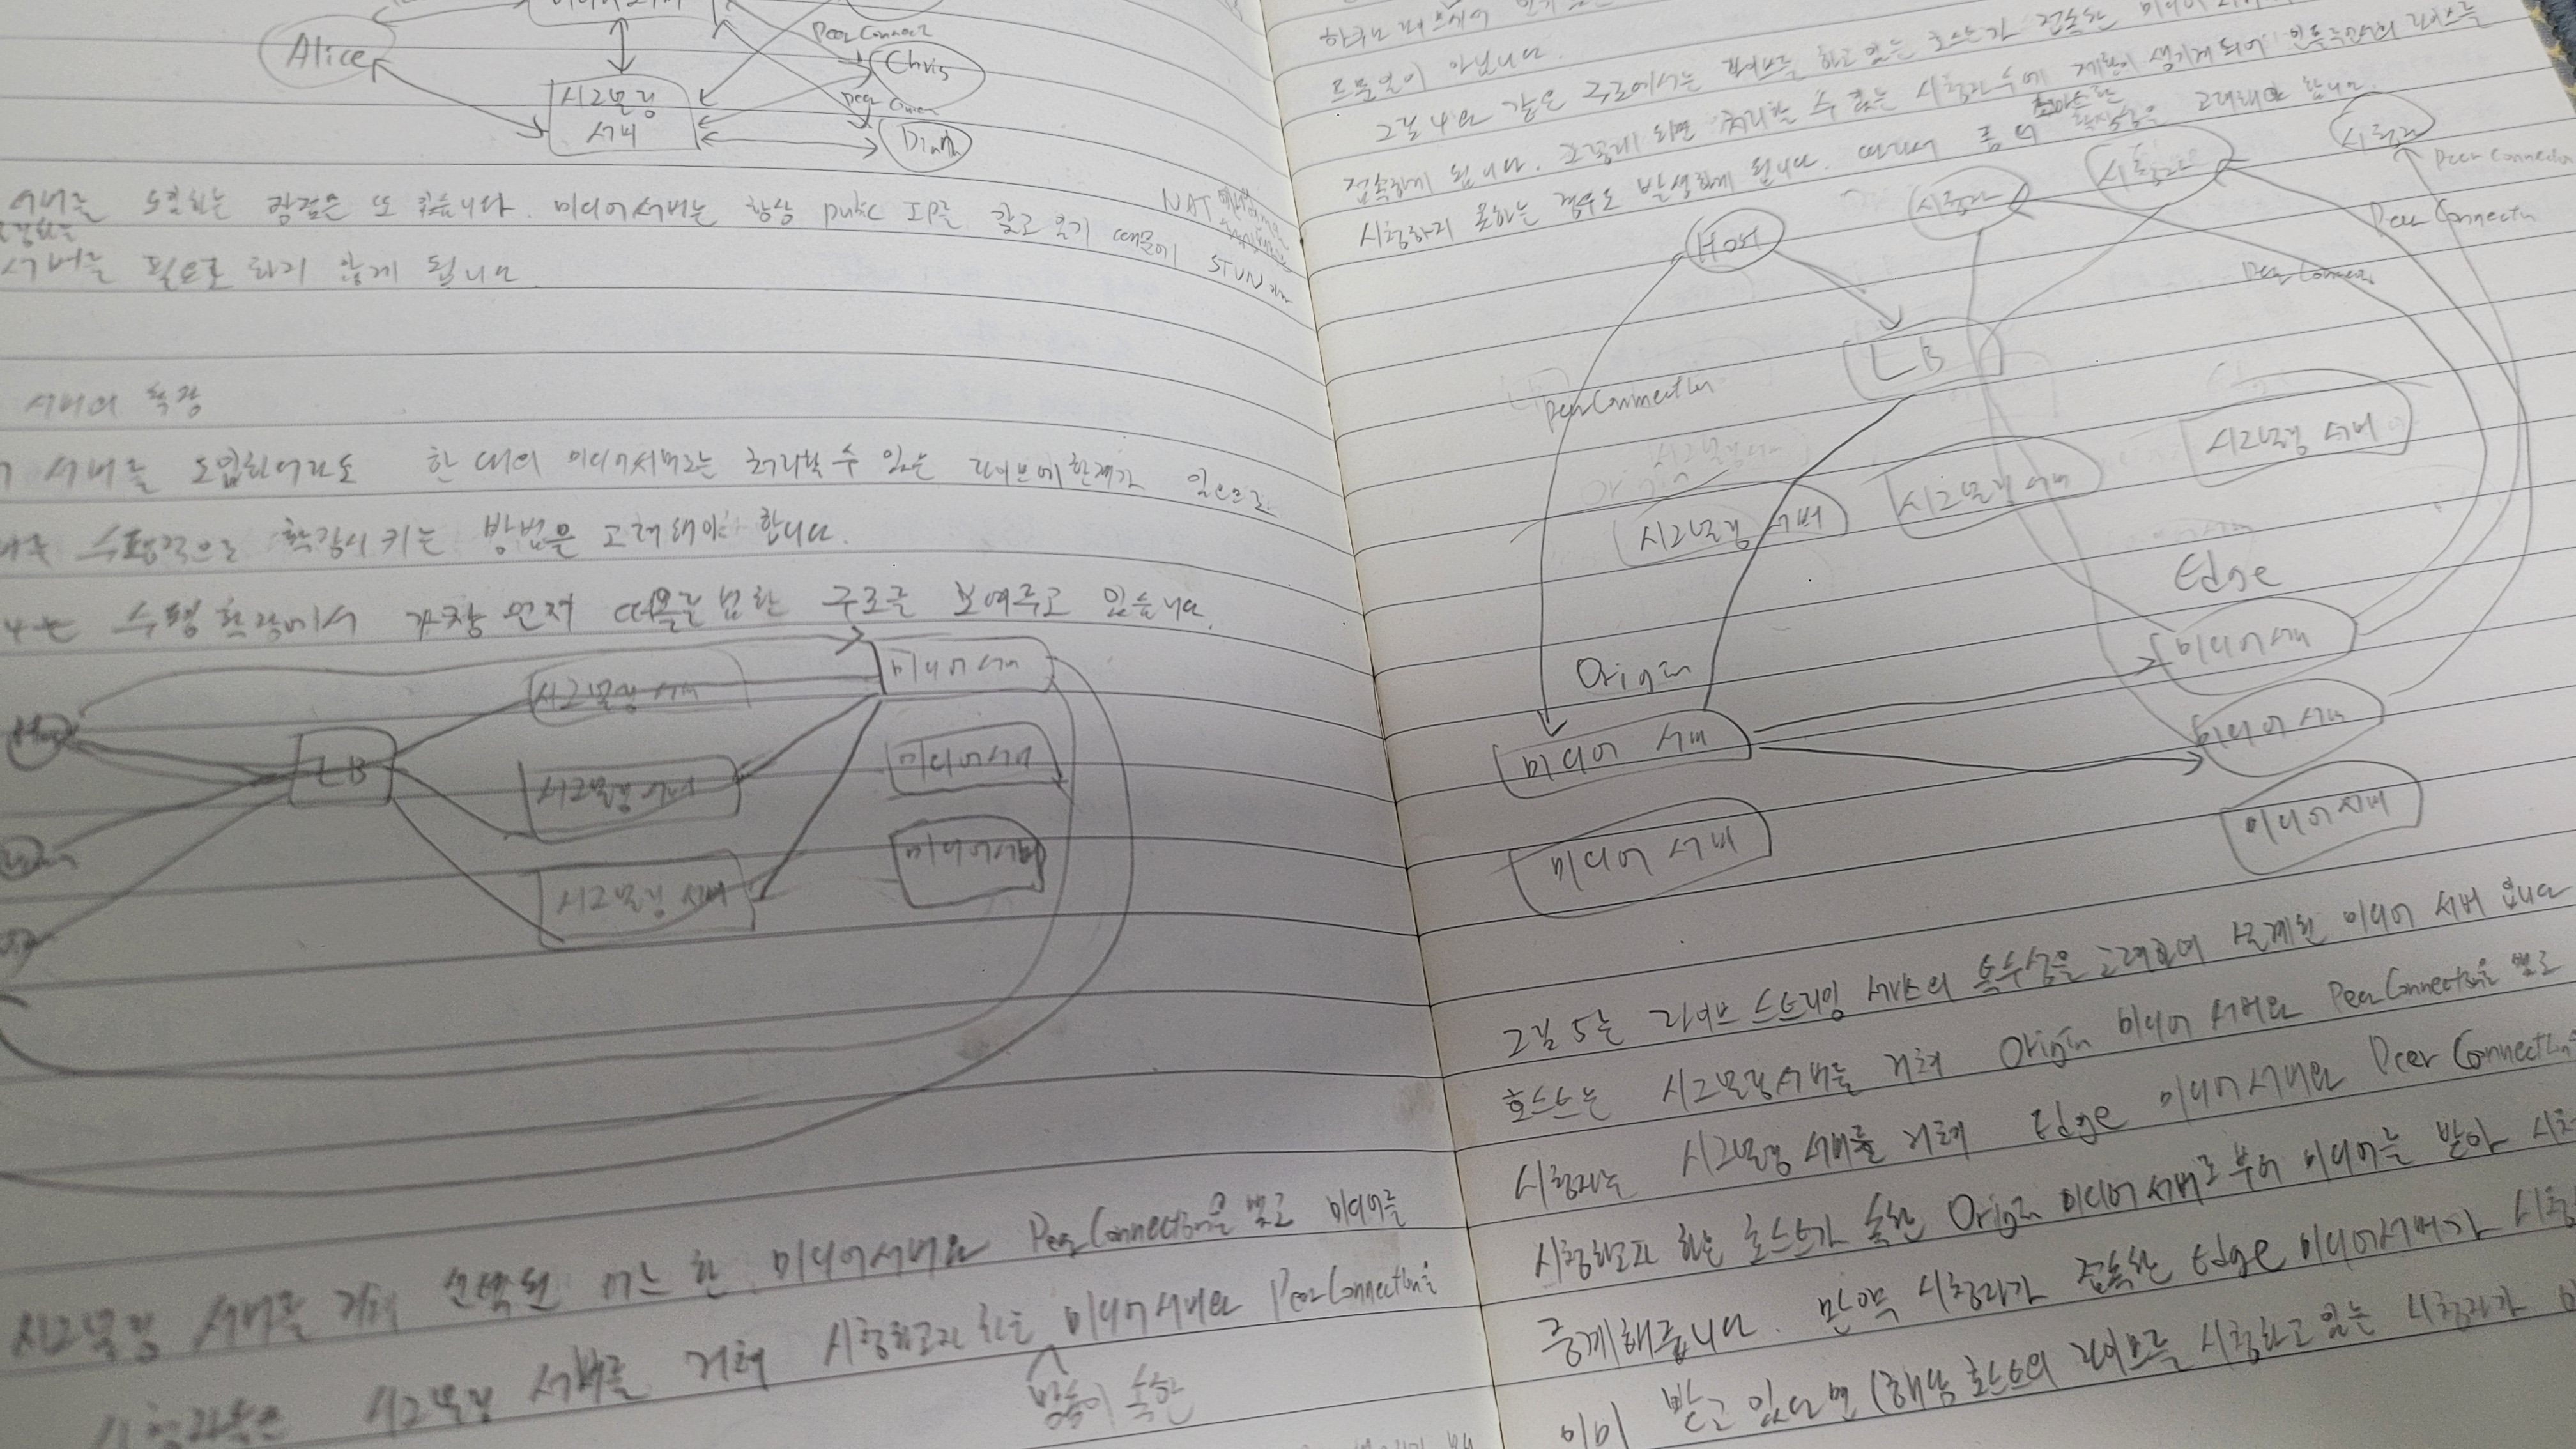 Alice
Peer Connect
Chris
시그널링
서버
Diana
서버를 도입하는 장점은 또 있습니다. 미디어서버는 항상 public IP를 갖고 있기 때문에 STUN
NAT
서버를 필요로 하지 않게 됩니다.
서버의 확장
서버를 도입하더라도 한 대의 미디어서버로는 처리할 수 있는 라이브에 한계가 있으므로
수평적으로 확장시키는 방법을 고려해야 합니다.
4는 수평 확장에서 가장 먼저 떠올릴 법한 구조를 보여주고 있습니다.
LB
시그널링 서버
시그널링 서버
시그널링 서버
미디어 서버
미디어 서버
미디어 서버
시그널링 서버를 거쳐 선택된 어느 한 미디어서버와 PeerConnection을 맺고 미디어를
시청자들은 시그널링 서버를 거쳐 시청하고자 하는 미디어서버와 PeerConnection을
방송이 속한
드문일이 아닙니다.
그림 4와 같은 구조에서는 라이브를 하고 있는 호스트가 접속한 미디어
접속하게 됩니다. 그렇게 되면 처리할 수 있는 시청자 수에 제한이 생기게 되어 라이브를
시청하지 못하는 경우도 발생하게 됩니다. 따라서 좀 더 확장성을 고려해야 합니다.
Host
시청자
시청자
시청자
Peer Connection
Peer Connection
Peer Connection
LB
Peer Connection
시그널링 서버
시그널링 서버
시그널링 서버
Edge
Origin
미디어 서버
미디어 서버
미디어 서버
미디어 서버
미디어 서버
그림 5는 라이브 스트리밍 서비스의 특수성을 고려하여 설계된 미디어 서버 입니다
호스트는 시그널링서버를 거쳐 Origin 미디어 서버와 PeerConnection을 맺고
시청자는 시그널링 서버를 거쳐 Edge 미디어서버와 Peer Connection
시청하고자 하는 호스트가 속한 Origin 미디어서버로 부터 미디어를 받아
중계해줍니다. 만약 시청자가 접속한 Edge 미디어서버가
이미 받고 있다면 (해당 호스트의 라이브를 시청하고 있는 시청자가